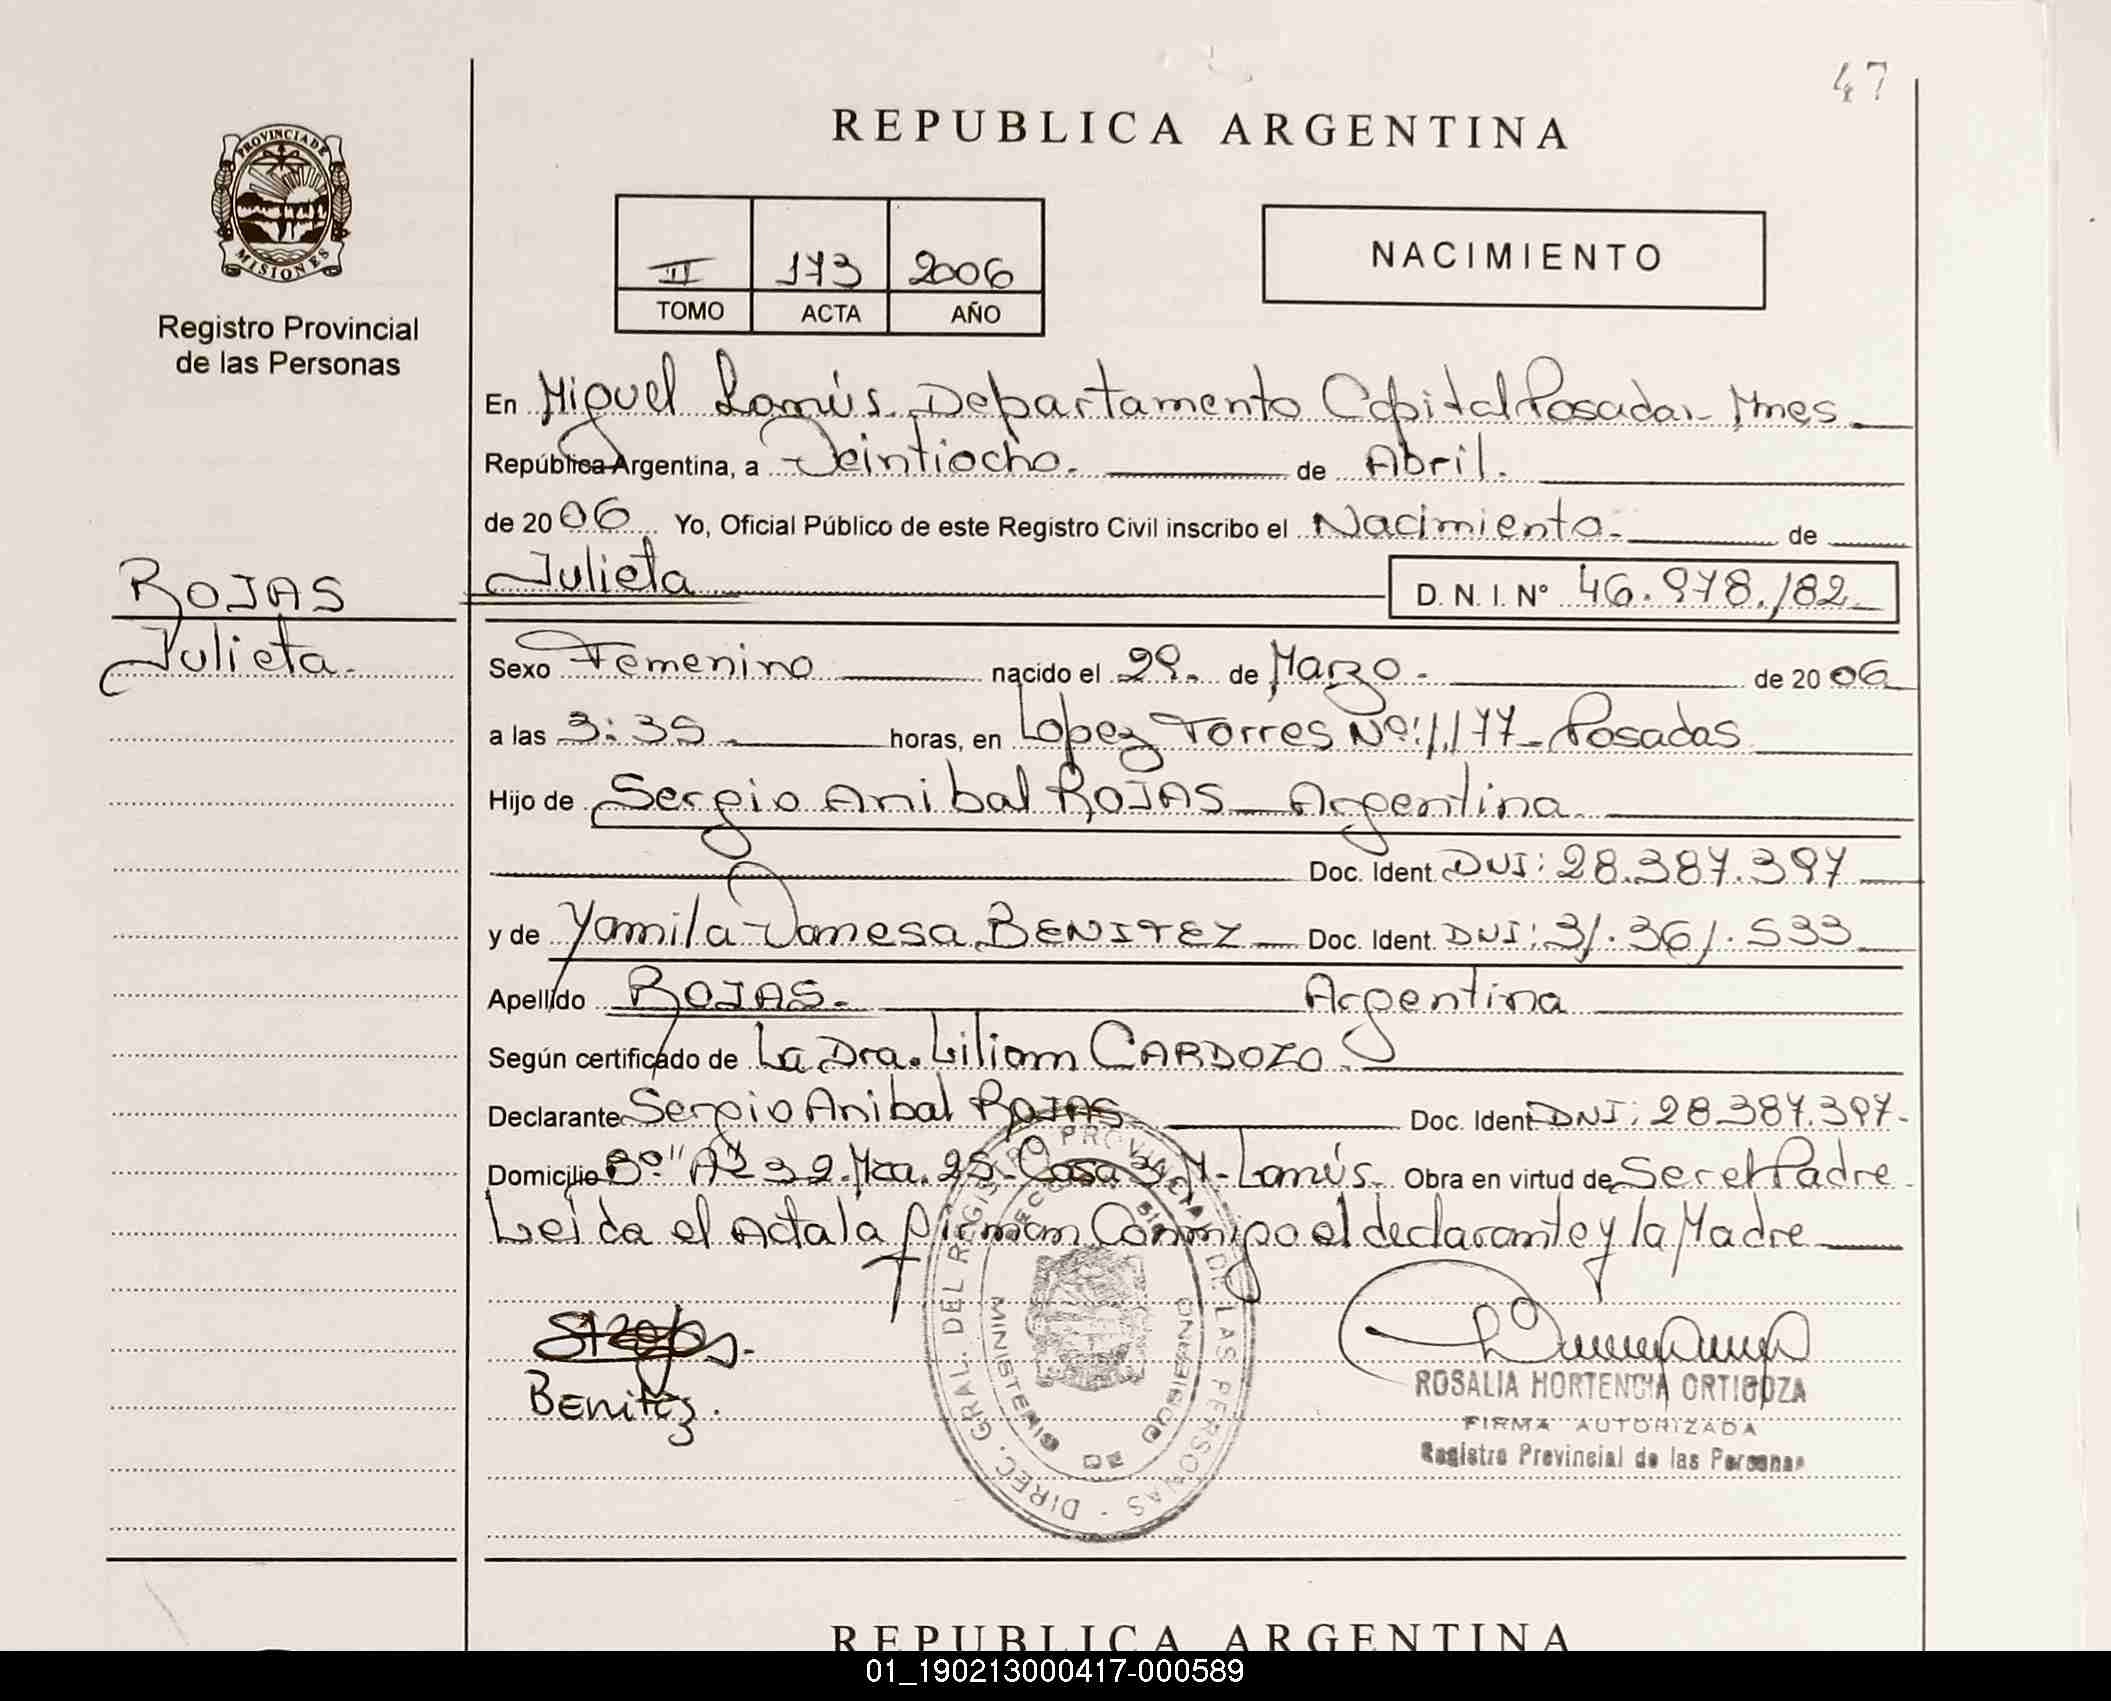 47
REPUBLICA ARGENTINA
PROVINCIA DE
MISIONES
Registro Provincial
de las Personas
II 173 2006
TOMO ACTA AÑO
NACIMIENTO
En Miguel Lanús. Departamento Capital Posadas - Mnes
República Argentina, a Veintiocho. de Abril.
de 2006 Yo, Oficial Público de este Registro Civil inscribo el Nacimiento. de
ROJAS
Julieta.
Julieta D. N. I. Nº 46.978.182
Sexo Femenino nacido el 29. de Marzo. de 2006
a las 3:35. horas, en Lopez Torres Nº: 1.177 - Posadas
Hijo de Sergio Anibal ROJAS - Argentina
Doc. Ident. DNI: 28.387.397
y de Yamila Vanesa BENITEZ Doc. Ident. DNI: 31.361.533
Apellido ROJAS. Argentina
Según certificado de La Dra. Liliam CARDOZO
Declarante Sergio Anibal ROJAS Doc. Ident DNI: 28.387.397-
Domicilio Bº "A" 32. Mza. 25. Casa 3 M. Lanús. Obra en virtud de Ser el Padre
Leida el Acta la firman Conmigo el declarante y la Madre
DIREC. GRAL. DEL REGISTRO PROVINCIAL DE LAS PERSONAS
MINISTERIO DE GOBIERNO
Benitez.
ROSALIA HORTENCIA ORTIGOZA
FIRMA AUTORIZADA
Registro Provincial de las Personas
REPUBLICA ARGENTINA
01_190213000417-000589